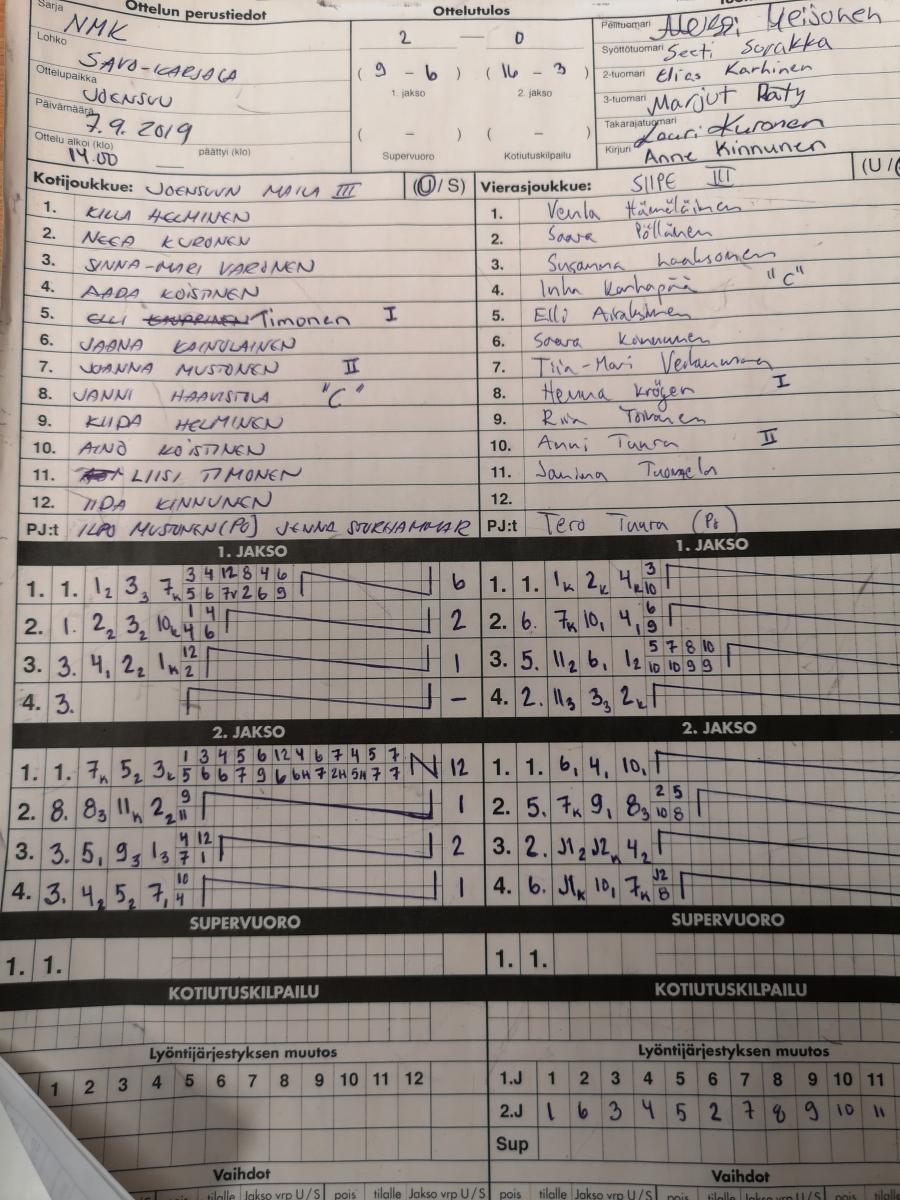 Sarja NMK
Lohko SAVO-KARJALA
Ottelupaikka JOENSUU
Päivämäärä 7.9.2019
Ottelu alkoi (klo) 14.00 päättyi (klo)
Ottelun perustiedot
Ottelutulos
2 — 0
( 9 - 6 ) ( 16 - 3 )
1. jakso 2. jakso
( - ) ( - )
Supervuoro Kotiutuskilpailu
Pelituomari Meisonen
Syöttötuomari Seeti Sorakka
2-tuomari Elias Karhinen
3-tuomari Marjut Räty
Takarajatuomari Lauri Kuronen
Kirjuri Anne Kinnunen
Kotijoukkue: JOENSUUN MAILA III (U / S)
1. HELMINEN
2. NEEA KURONEN
3. SINNA-MARI VARONEN
4. AADA KOISTINEN
5. ELLI Timonen I
6. JAANA KAINULAINEN
7. JOANNA MUSTONEN II
8. JANNI HAAVISTOLA "C"
9. KIIDA HELMINEN
10. AINO KOISTINEN
11. LIISI TIMONEN
12. IIDA KINNUNEN
PJ:t ILPO MUSTONEN (PÖ) JENNA STORHAMMAR
Vierasjoukkue: SIIPE III (U /
1. Venla Hämäläinen
2. Saara Pöllänen
3. Susanna Laaksonen
4. Inka Karhapää "C"
5. Elli Airaksinen
6. Saara Konnunen
7. Tiia-Mari
8. Henna Kröger I
9. Riia Toivanen
10. Anni Tuura II
11. Janina
12.
PJ:t Tero Tuura (Pö)
1. JAKSO
1. 1. 1₂ 3₃ 7ₖ 3 4 12 8 4 6 6
5 6 7v 2 6 9
2. 1. 2₂ 3₂ 10ₖ 1 4 2
4 6
3. 3. 4₁ 2₂ 1ₖ 12 1
2
4. 3. –
1. JAKSO
1. 1. 1ₖ 2ₖ 4ₖ 3
10
2. 6. 7ₖ 10₁ 4₁ 6
9
3. 5. 11₂ 6₁ 1₂ 5 7 8 10
10 10 9 9
4. 2. 11₃ 3₃ 2ₖ
2. JAKSO
1. 1. 7ₖ 5₂ 3ₖ 1 3 4 5 6 12 4 6 7 4 5 7 N 12
5 6 6 7 9 6 6H 7 2H 5H 7 7
2. 8. 8₃ 11ₖ 2₂ 9 1
11
3. 3. 5₁ 9₃ 1₃ 4 12 2
7 1
4. 3. 4₂ 5₂ 7₁ 10 1
4
2. JAKSO
1. 1. 6₁ 4₁ 10₁
2. 5. 7ₖ 9₁ 8₃ 2 5
10 8
3. 2. J1₂ J2ₖ 4₂
4. 6. J1ₖ 10₁ 7ₖ J2
8
SUPERVUORO
1. 1.
SUPERVUORO
1. 1.
KOTIUTUSKILPAILU
KOTIUTUSKILPAILU
Lyöntijärjestyksen muutos
1 2 3 4 5 6 7 8 9 10 11 12
Lyöntijärjestyksen muutos
1.J 1 2 3 4 5 6 7 8 9 10 11
2.J 1 6 3 4 5 2 7 8 9 10 11
Sup
Vaihdot
tilalle Jakso vrp U / S pois tilalle Jakso vrp U / S
Vaihdot
pois tilalle Jakso vrp U / S pois tilalle Jakso vrp U